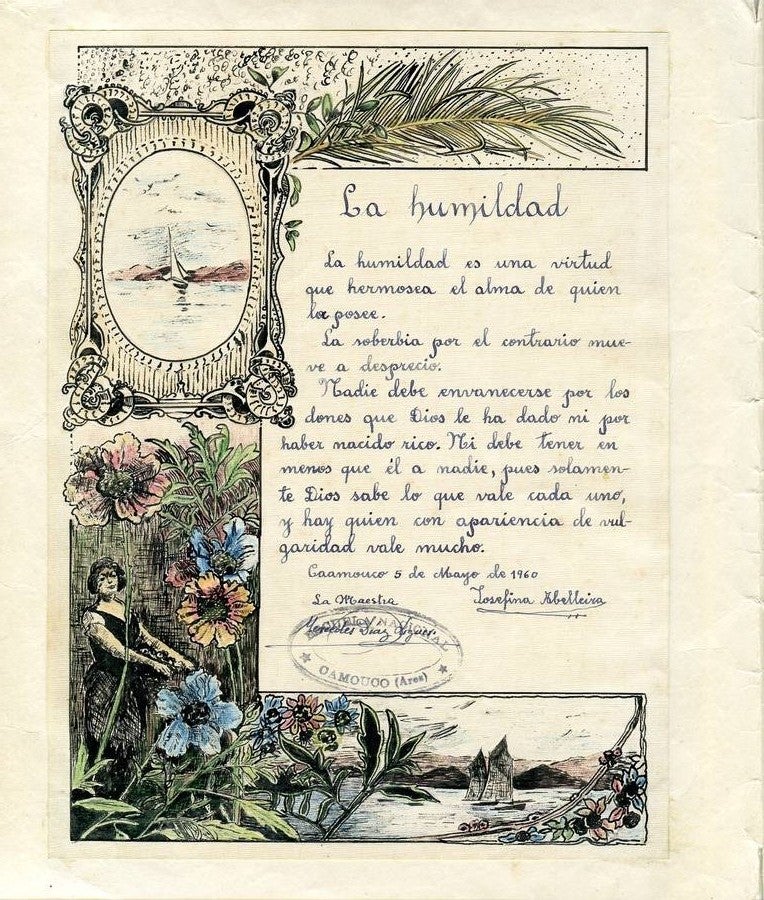 La humildad
La humildad es una virtud
que hermosea el alma de quien
la posee.
La soberbia por el contrario mue-
ve a desprecio.
Nadie debe envanecerse por los
dones que Dios le ha dado ni por
haber nacido rico. Ni debe tener en
menos que él a nadie, pues solamen-
te Dios sabe lo que vale cada uno,
y hay quien con apariencia de vul-
garidad vale mucho.
Caamouco 5 de Mayo de 1960
La Maestra Josefina Abelleira
Mercedes Díaz
ESCUELA NACIONAL
CAMOUCO (Ares)